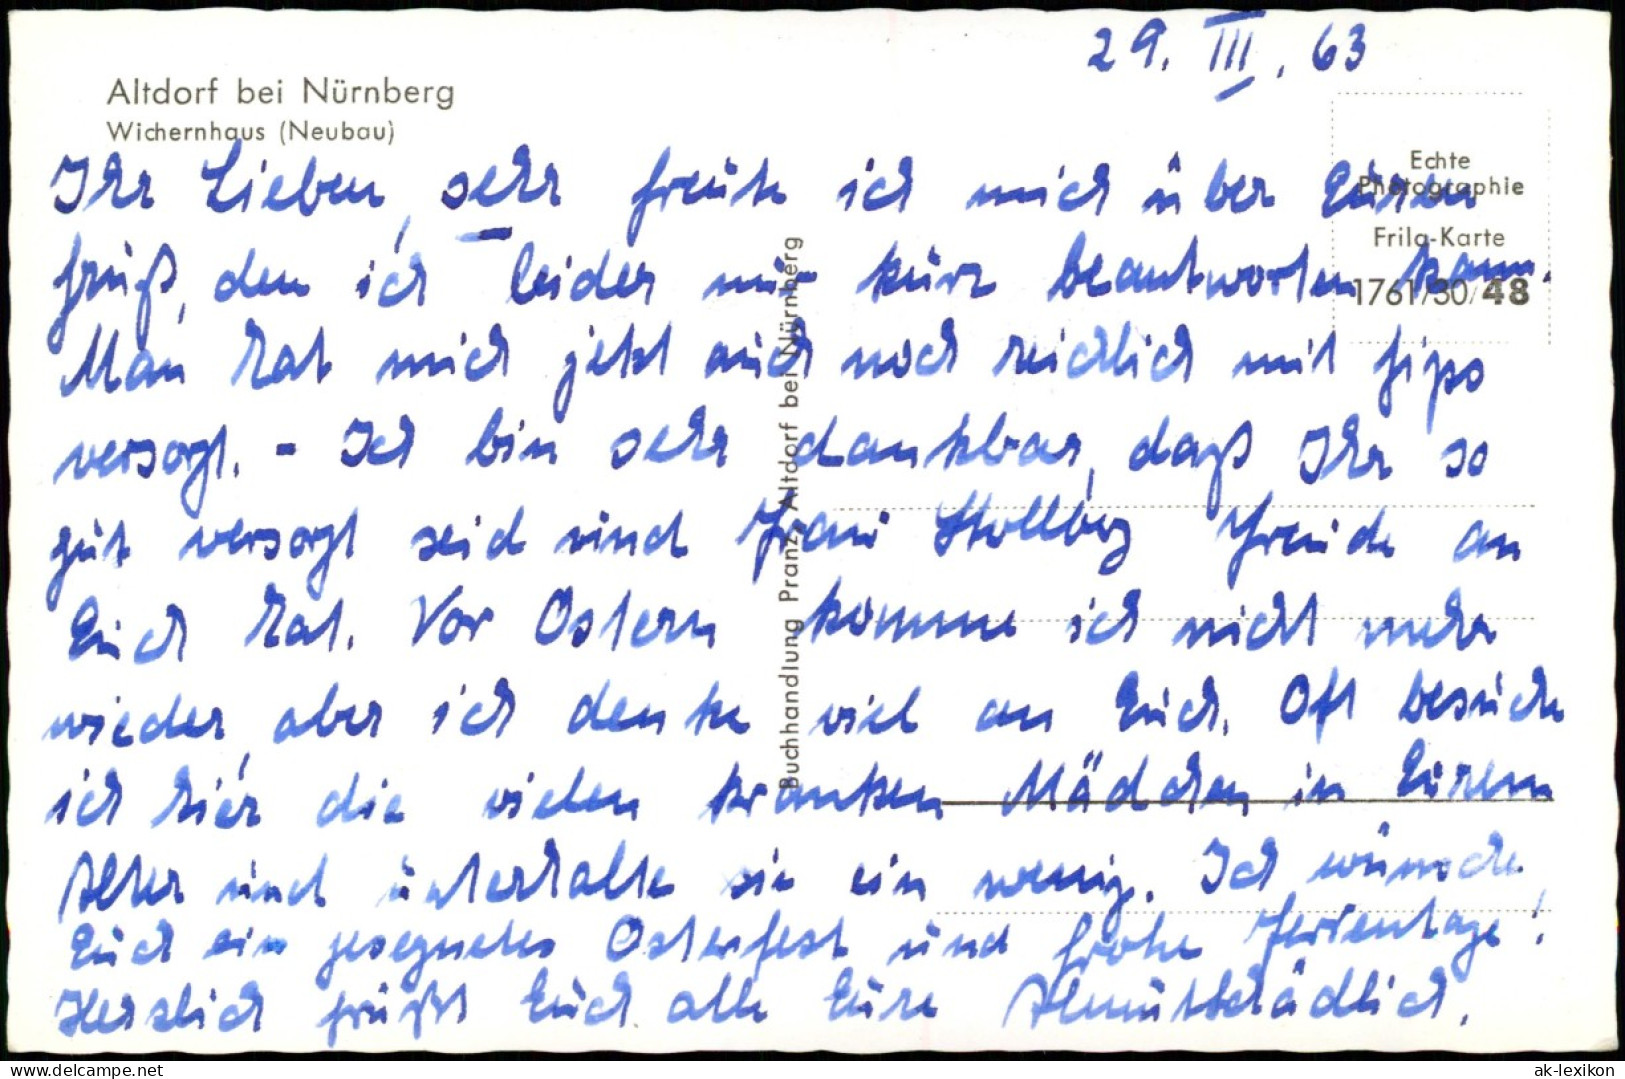 29. III. 63
Altdorf bei Nürnberg
Wichernhaus (Neubau)
Echte
Photographie
Frila-Karte
1761/30/48
Buchhandlung Pranz, Altdorf bei Nürnberg
Ihr Lieben, sehr freute ich mich über Euren
Gruß, den ich leider nur kurz beantworten kann.
Man hat mich jetzt auch noch reichlich mit Gips
versorgt. - Ich bin sehr dankbar, daß Ihr so
gut versorgt seid und Frau Stollberg Freude an
Euch hat. Vor Ostern komme ich nicht mehr
wieder, aber ich denke viel an Euch. Oft besuche
ich hier die vielen kranken Mädchen in Eurem
Alter und unterhalte sie ein wenig. Ich wünsche
Euch ein gesegnetes Osterfest und frohe Ferientage!
Herzlich grüßt Euch alle Eure
hippostcard.com
ak-lexikon